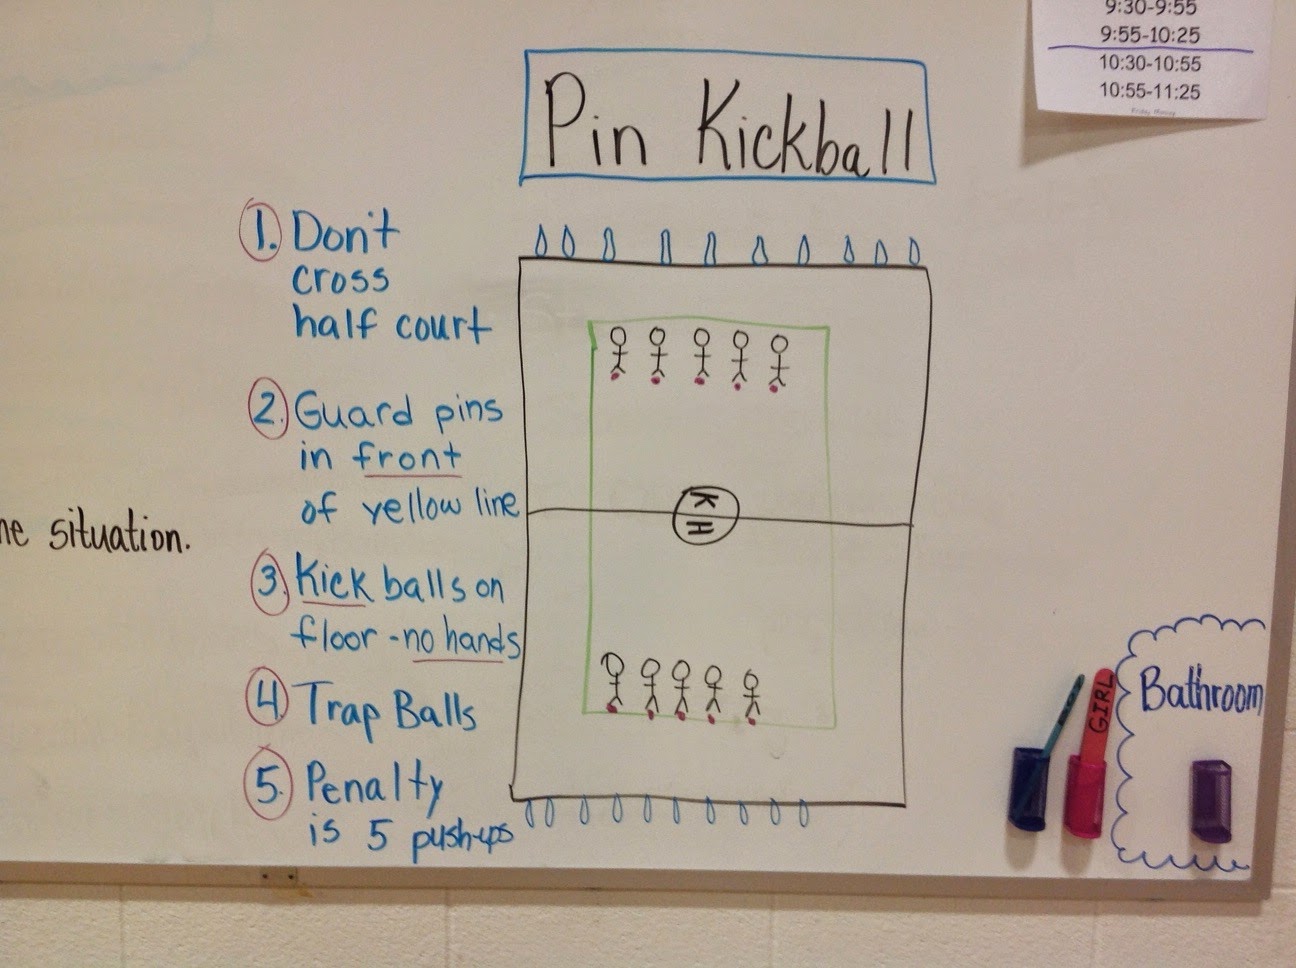 9:30-9:55
9:55-10:25
10:30-10:55
10:55-11:25
Pin Kickball
1. Don't
cross
half court
2. Guard pins
in front
of yellow line
3. Kick balls on
floor - no hands
4 Trap Balls
5. Penalty
is 5 pushups
K
H
ne situation.
GIRL
Bathroom